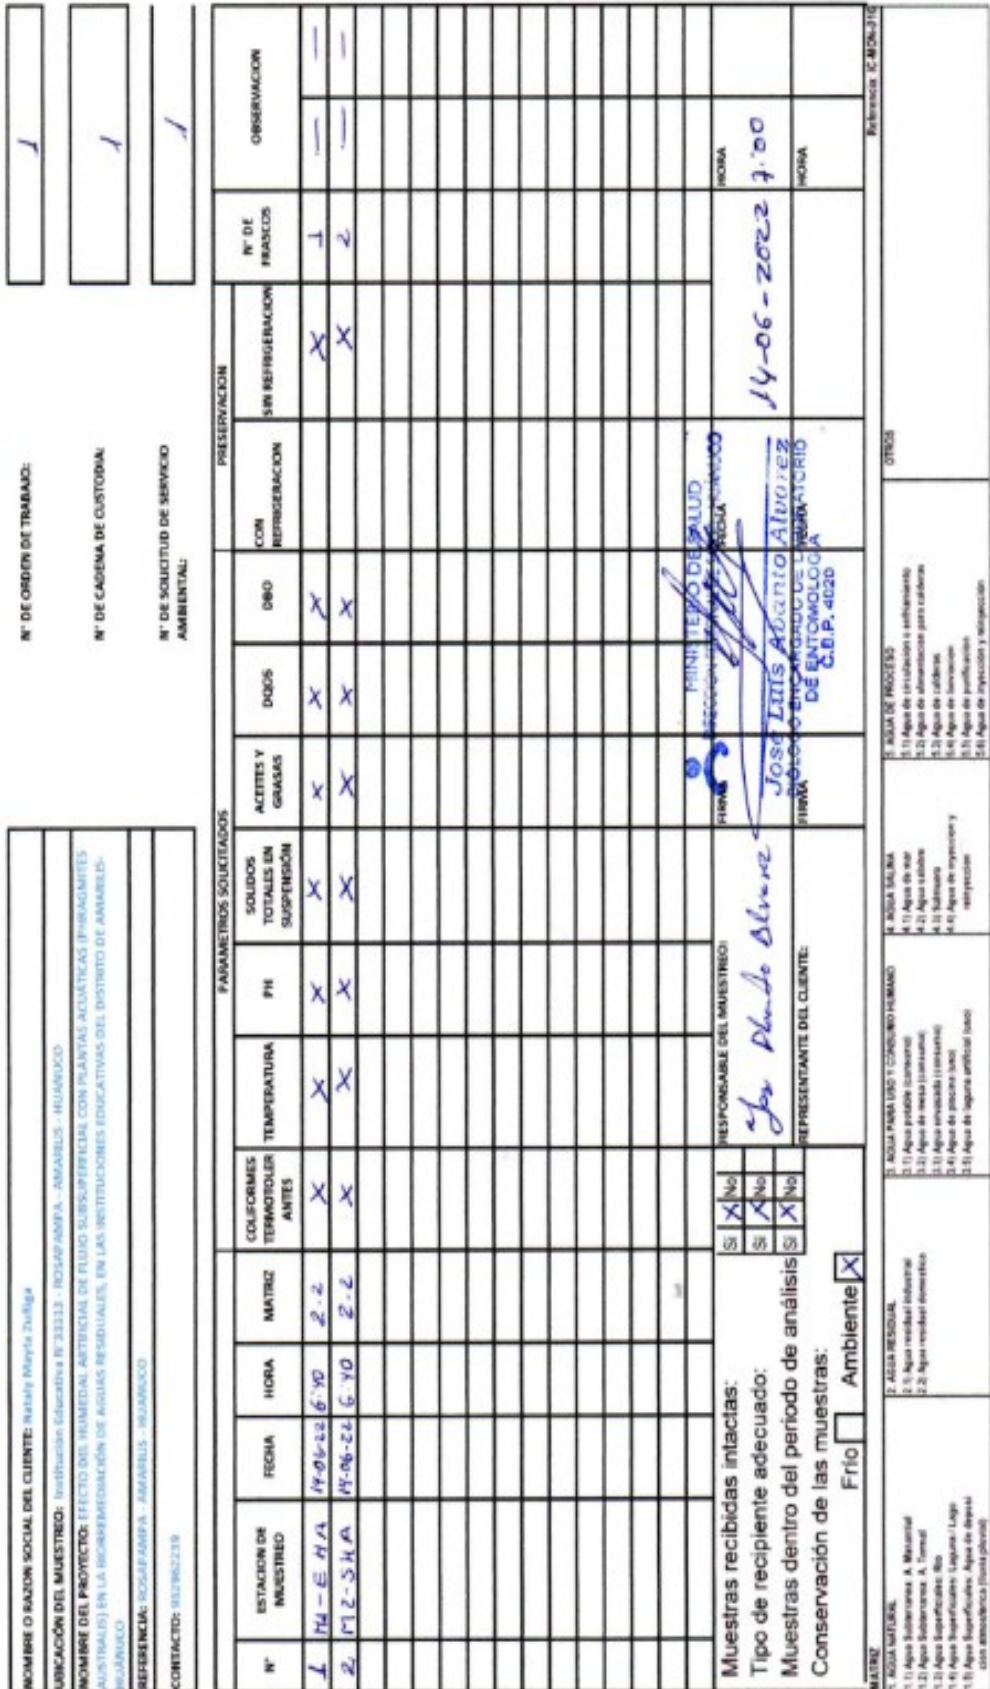 NOMBRE O RAZON SOCIAL DEL CLIENTE: Nataly Mayta Zuñiga
UBICACIÓN DEL MUESTREO: Institución Educativa N°33313 - ROSAPAMPA - AMARILIS - HUANUCO
NOMBRE DEL PROYECTO: EFECTO DEL HUMEDAL ARTIFICIAL DE FLUJO SUBSUPERFICIAL CON PLANTAS ACUÁTICAS (PHRAGMITES
AUSTRALIS) EN LA BIORREMEDIACIÓN DE AGUAS RESIDUALES, EN LAS INSTITUCIONES EDUCATIVAS DEL DISTRITO DE AMARILIS-
HUÁNUCO
REFERENCIA: ROSAPAMPA - AMARILIS - HUANUCO
CONTACTO: 932962239
N° DE ORDEN DE TRABAJO: 1
N° DE CADENA DE CUSTODIA: 1
N° DE SOLICITUD DE SERVICIO
AMBIENTAL: 1
PARAMETROS SOLICITADOS PRESERVACION
N° ESTACION DE MUESTREO FECHA HORA MATRIZ COLIFORMES TERMOTOLER ANTES TEMPERATURA PH SOLIDOS TOTALES EN SUSPENSIÓN ACEITES Y GRASAS DQOS DBO CON REFRIGERACION SIN REFRIGERACION N° DE FRASCOS OBSERVACION
1 M1-EHA 14-06-22 6:40 2.2 X X X X X X X X 1 — —
2 M2-SHA 14-06-22 6:40 2.2 X X X X X X X X 2 — —
Muestras recibidas intactas: Si X No
Tipo de recipiente adecuado: Si X No
Muestras dentro del periodo de análisis Si X No
Conservación de las muestras:
Frío Ambiente X
RESPONSABLE DEL MUESTREO: FIRMA FECHA HORA
14-06-2022 7:00
MINISTERIO DE SALUD
Jose Luis Abanto Alvarez
BIÓLOGO ENCARGADO DE LABORATORIO
DE ENTOMOLOGÍA
C.B.P. 4020
REPRESENTANTE DEL CLIENTE: FIRMA FECHA HORA
MATRIZ Referencia: IC-MON-01G
1. AGUA NATURAL
1.1) Agua Subterranea: A. Manantial
1.2) Agua Subterranea: A. Termal
1.3) Agua Superficiales: Rio
1.4) Agua Superficiales: Laguna / Lago
1.5) Agua Superficiales: Agua de deposi
cion atmosferica (lluvia pluvial)
2. AGUA RESIDUAL
2.1) Agua residual industrial
2.2) Agua residual domestica
3. AGUA PARA USO Y CONSUMO HUMANO
3.1) Agua potable (consumo)
3.2) Agua de mesa (consumo)
3.3) Agua envasada (consumo)
3.4) Agua de piscina (uso)
3.5) Agua de laguna artificial (uso)
4. AGUA SALINA
4.1) Agua de mar
4.2) Agua salobre
4.3) Salmuera
4.4) Agua de inyeccion y
reinyeccion
5. AGUA DE PROCESO
5.1) Agua de circulacion o enfriamiento
5.2) Agua de alimentacion para calderas
5.3) Agua de calderas
5.4) Agua de lixiviacion
5.5) Agua de purificacion
5.6) Agua de inyeccion y reinyeccion
OTROS